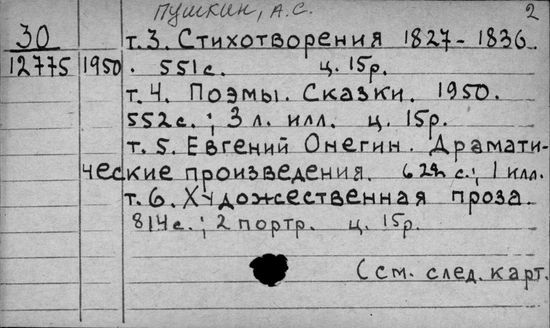 Пушкин, А.С. 2
30 т.3. Стихотворения 1827-1836.
12775 1950. 551с. ц. 15р.
т.4. Поэмы. Сказки. 1950.
552с.; 3 л. илл. ц. 15р.
т.5. Евгений Онегин. Драмати-
ческие произведения. с.; 1 илл.
т.6. Художественная проза.
814с.; 2 портр. ц. 15р.
(см. след. карт.